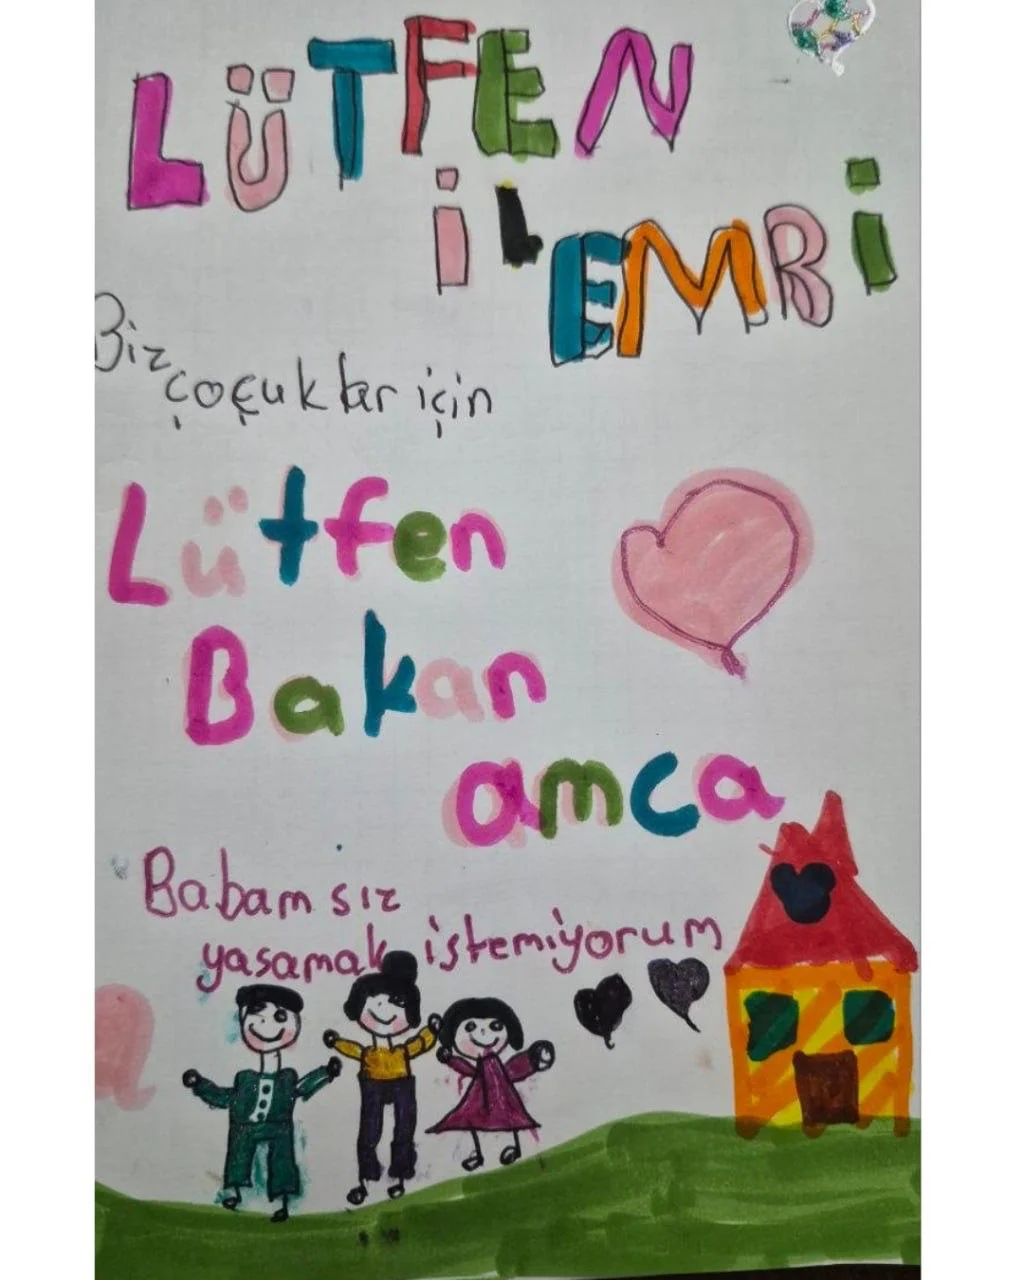 LÜTFEN
iLEMRi
Biz
çoçuklar için
Lütfen
Bakan
amca
Babam sız
yasamak istemiyorum